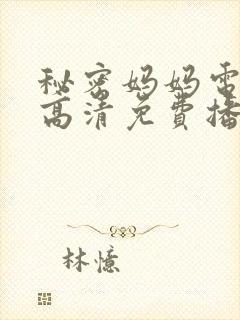 秘密妈妈电
高清免费播
林憶